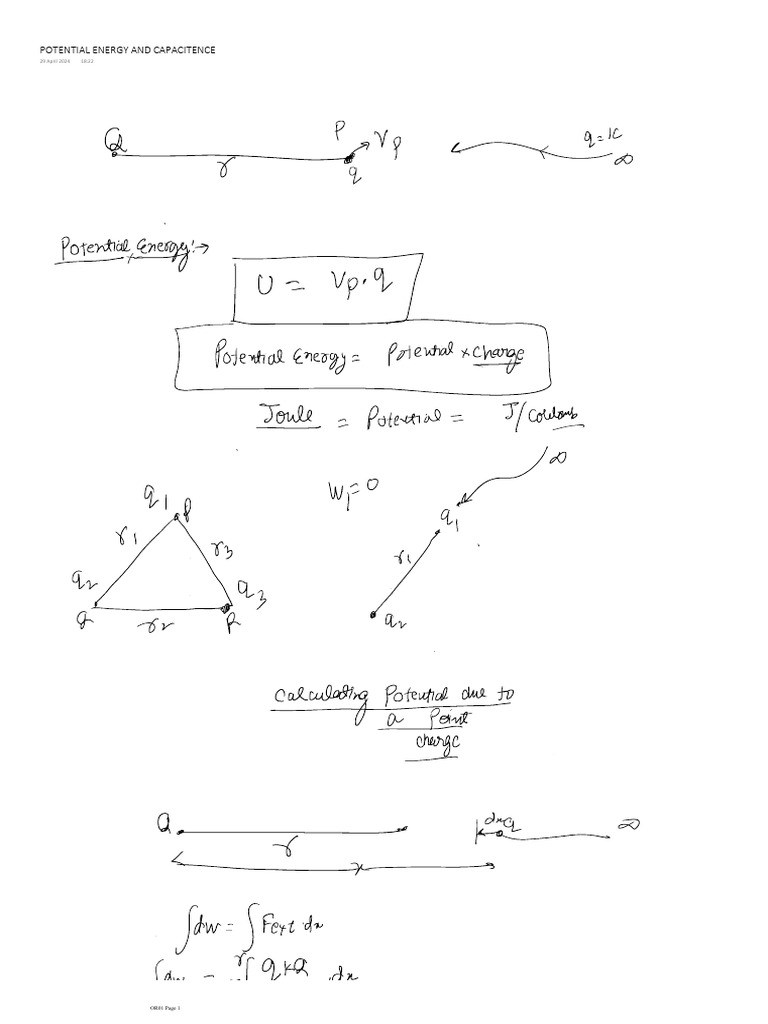 POTENTIAL ENERGY AND CAPACITENCE
29 April 2024 18:22
Q r P Vp q q=1C ∞
Potential Energy:→
U = Vp.q
Potential Energy = Potential × Charge
Joule = Potential = J/Coulomb
∞
q1 P W1=0
r1 r3 q1
q2 q3 r1
r2 R q2
Calculating Potential due to
a Point
charge
Q dx q ∞
r
x
∫dw = ∫Fext.dx
∫dw = r∫ qkQ .dx
OR01 Page 1